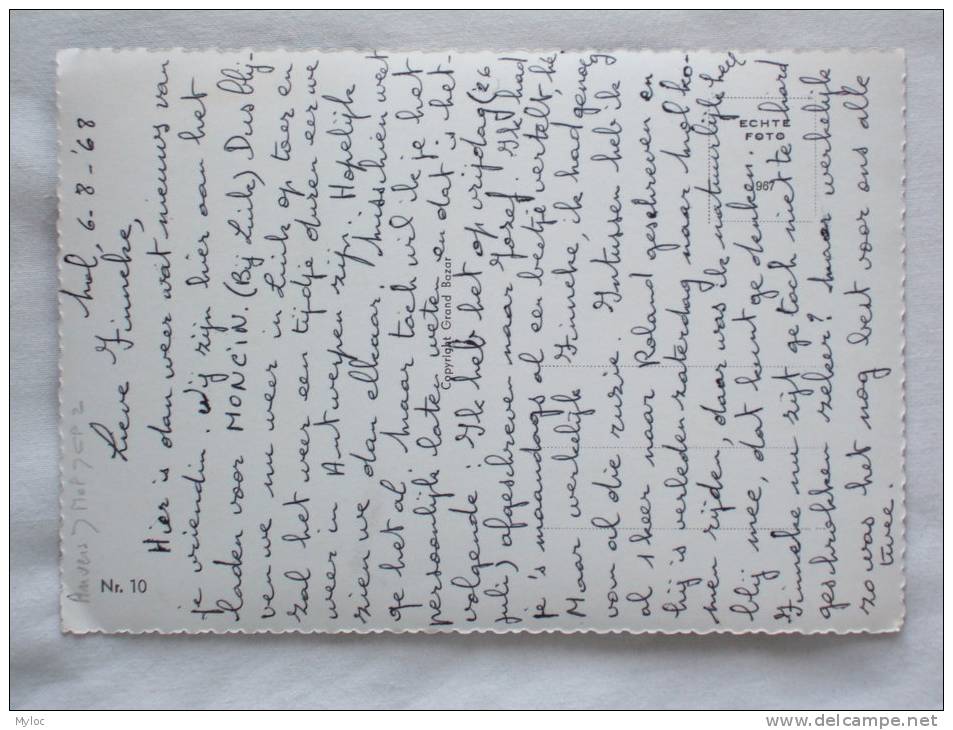 Anvers > Mol > CP 2
Nr. 10
Mol, 6-8-'68
Lieve Finneke,
Hier is dan weer wat nieuws van
je vriendin. Wij zijn hier aan het
laden voor MONCIN. (Bij Luik) Dus blij-
ven we nu weer in Luik op toer en
zal het weer een tijdje duren eer we
weer in Antwerpen zijn. Hopelijk
zien we dan elkaar. Misschien weet
ge het al, maar toch wil ik je het
persoonlijk laten weten en dat is het-
volgende: Ik heb het op vrijdag ('26
juli) afgeschreven naar Jozef. Ik had
je 's maandags al een beetje vertelt, hé
Maar werkelijk Finneke, ik had genoeg
van al die ruzie. Intussen heb ik
al 2 keer naar Roland geschreven en
hij is verleden zaterdag naar Mol ko-
men rijden, daar was ik natuurlijk heel
blij mee, dat kunt ge denken.
Finneke nu zijt ge toch niet te hard
geschrokken zeker? Maar werkelijk
zo was het nog best voor ons alle
twee.
Copyright Grand Bazar
ECHTE
FOTO
1967
Myloc
www.delcampe.net